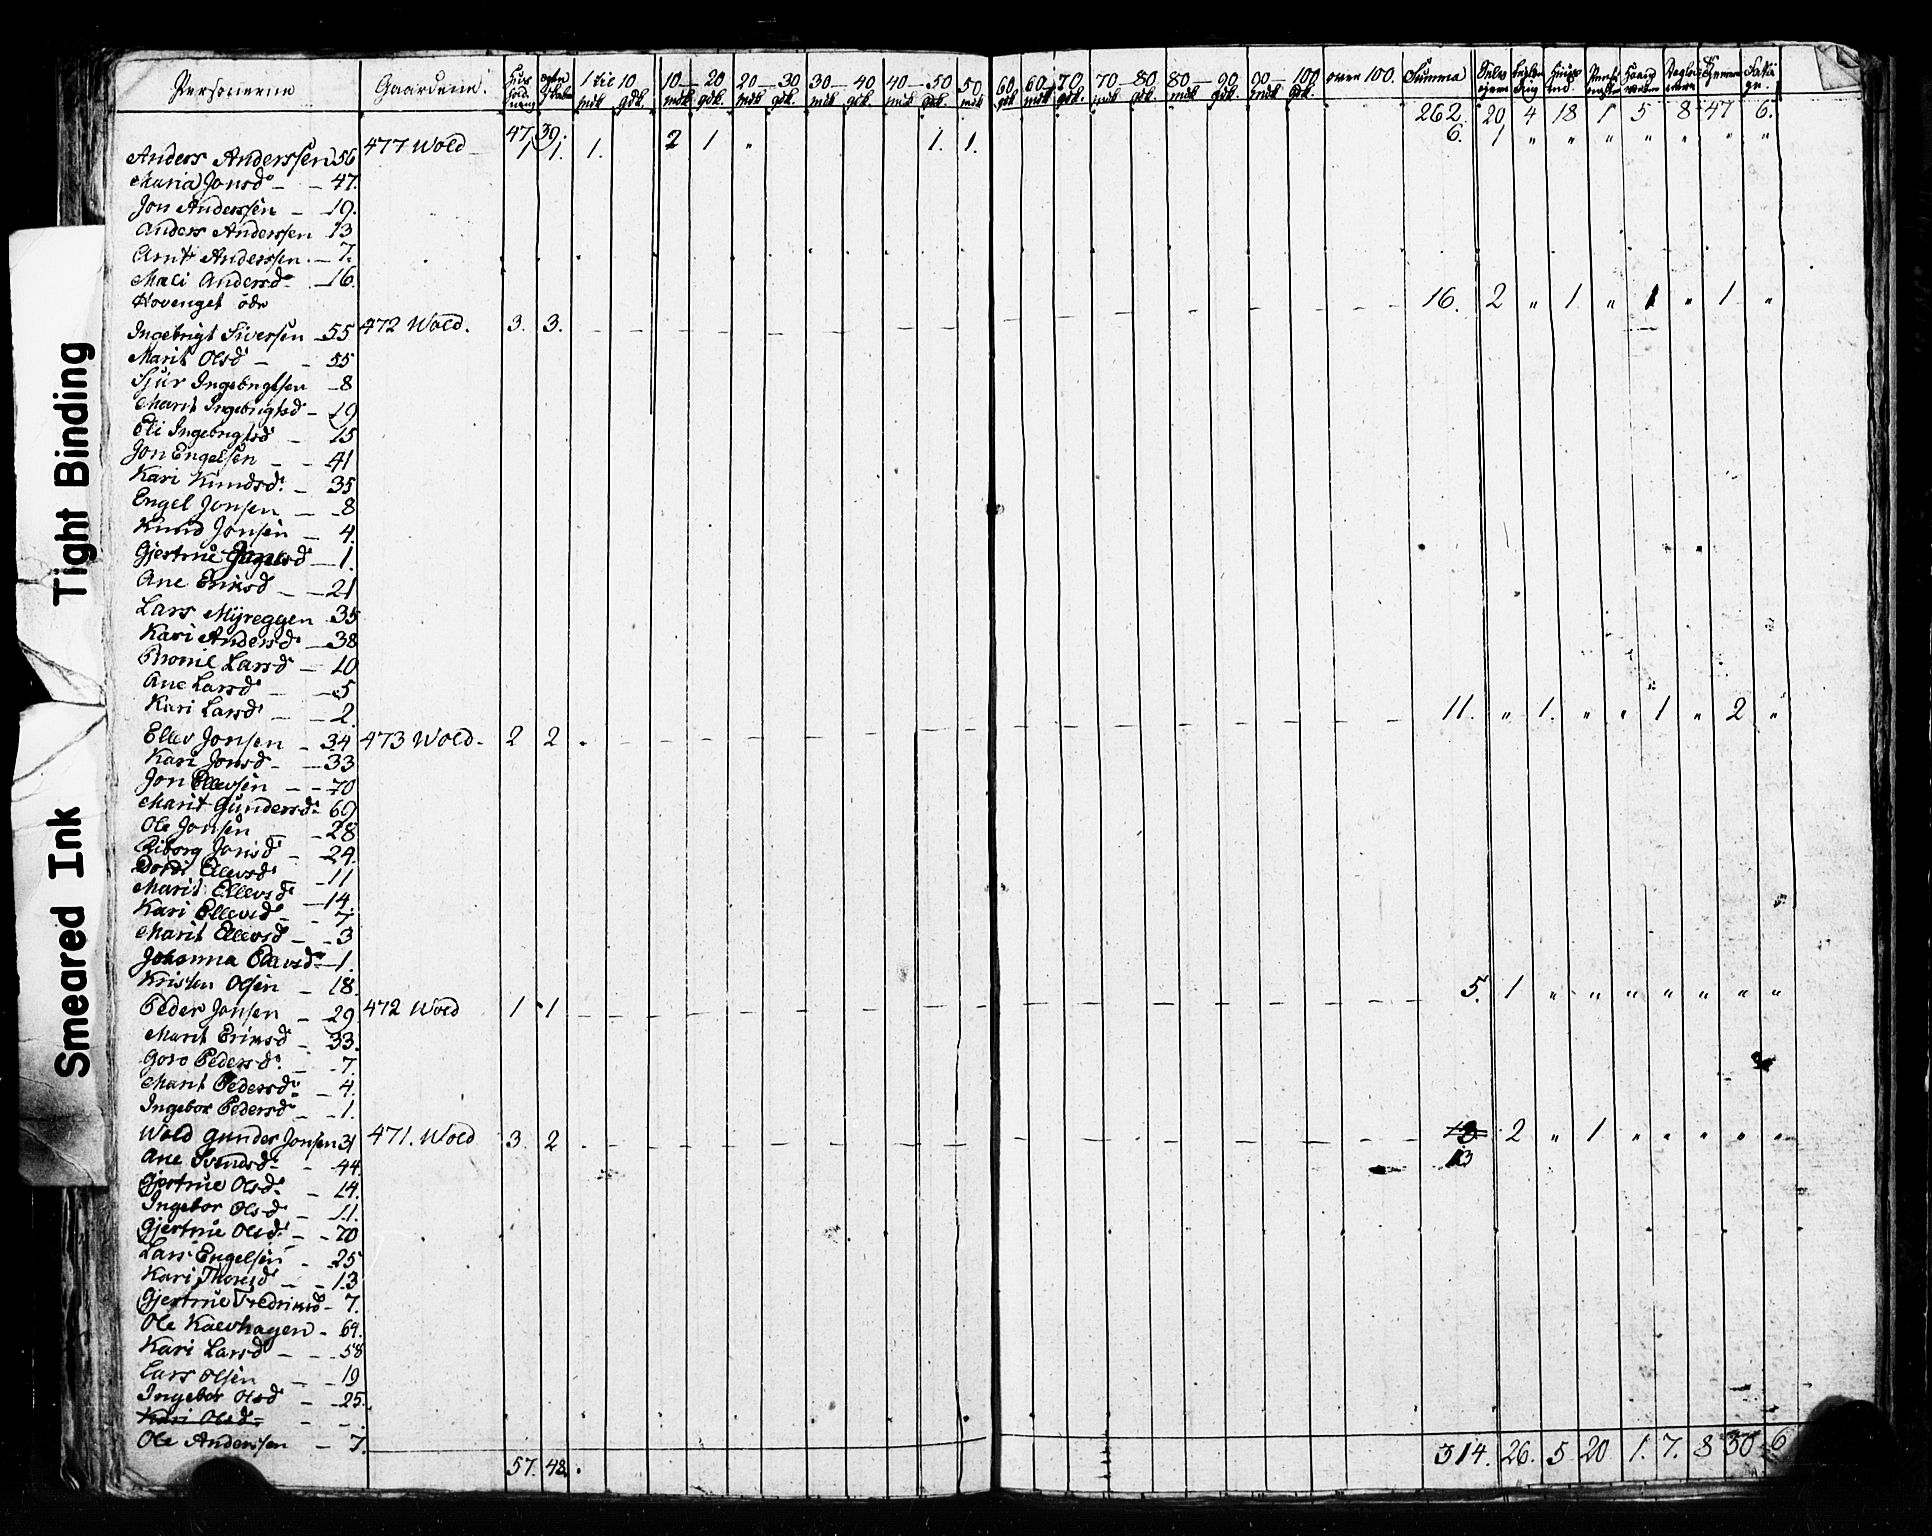 Personerne Gaardene. 1 til 10 10—20 20—30 30—40 40—50 50. 60 60—70 70—80 80—90 90—100 over 100. Summa
mdk gdk. mdk gdk. mdk gdk. mdk gdk. mdk gdk. mdk gdk mdk gdk. mdk gdk. mdk gdk. mdk gdk.
47 39. 262. 20 4 18 1 5 8 47 6.
Anders Anderssen 56 477 Wold 1 1. 1. 2 1 " 1. 1. 6. 1 " " " " " " "
Maria Jonsd — 47.
Jon Anderssen — 19.
Anders Anderssen 13
Arnt Anderssen — 7.
Mali Andersd — 16.
Hovenget öde 16. 2 " 1. " 1 " 1 "
Ingebrigt Siversen — 55 472 Wold. 3. 3.
Marit Olsd — 55
Sjur Ingebrigtsen — 8
Marit Ingebrigtsd — 19
Eli Ingebrigtsd — 15
Jon Engelsen — 41
Kari Knudsd. — 35
Engel Jonsen — 8
Knud Jonsen — 4.
Gjertrue — 1.
Ane Eriksd — 21
Lars Myreggen 35
Kari Andersd — 38
Larsd — 10
Ane Larsd — 5
Kari Larsd — 2. 11. " 1. " " 1 " 2 "
Ellev Jonsen — 34 473 Wold. 2 2
Kari Jonsd — 33
Jon Ellevsen — 70
Marit Gundersd — 69
Ole Jonsen — 28
Jonsd — 24.
Dordi Ellevsd — 11
Marit Ellevsd — 14.
Kari Ellevsd — 7
Marit Ellevsd — 3
Johanna Ellevsd — 1.
Kristen Olsen — 18. 5. 1 " " " " " " "
Peder Jonsen — 29 472 Wold 1 1
Marit Eriksd — 33.
Goro Pedersd. — 7.
Marit Pedersd — 4.
Ingebor Pedersd — 1.
Wold Gunder Jonsen 31 471. Wold 3 2 2 " 1 " " " " "
Ane Svendsd — 44. 13
Gjertrue Olsd — 14.
Ingebor Olsd — 11.
Gjertrue Olsd — 70
Lars Engelsen — 25
Kari Thoresd — 13
Gjertrue Fredriksd — 7.
Ole Kalvhagen — 69.
Kari Larsd — 58
Lars Olsen — 19
Ingebor Olsd — 25.
Kari Olsd
Ole Anderssen — 7.
57. 48. 314. 26. 5 20 1. 7. 8 50 6
Tight Binding
Smeared Ink